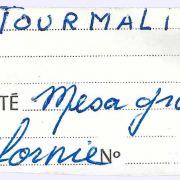 TOURMALI
TÉ Mesa gra
lornie N°